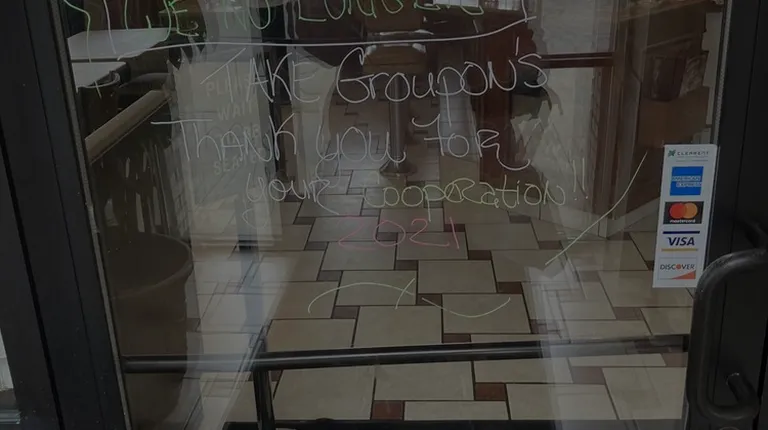 WE NO LONGER
TAKE GROUPON'S
THANK YOU FOR
YOUR COOPERATION!!
2021
ELEMENT
AMERICAN EXPRESS
mastercard
VISA
DISCOVER